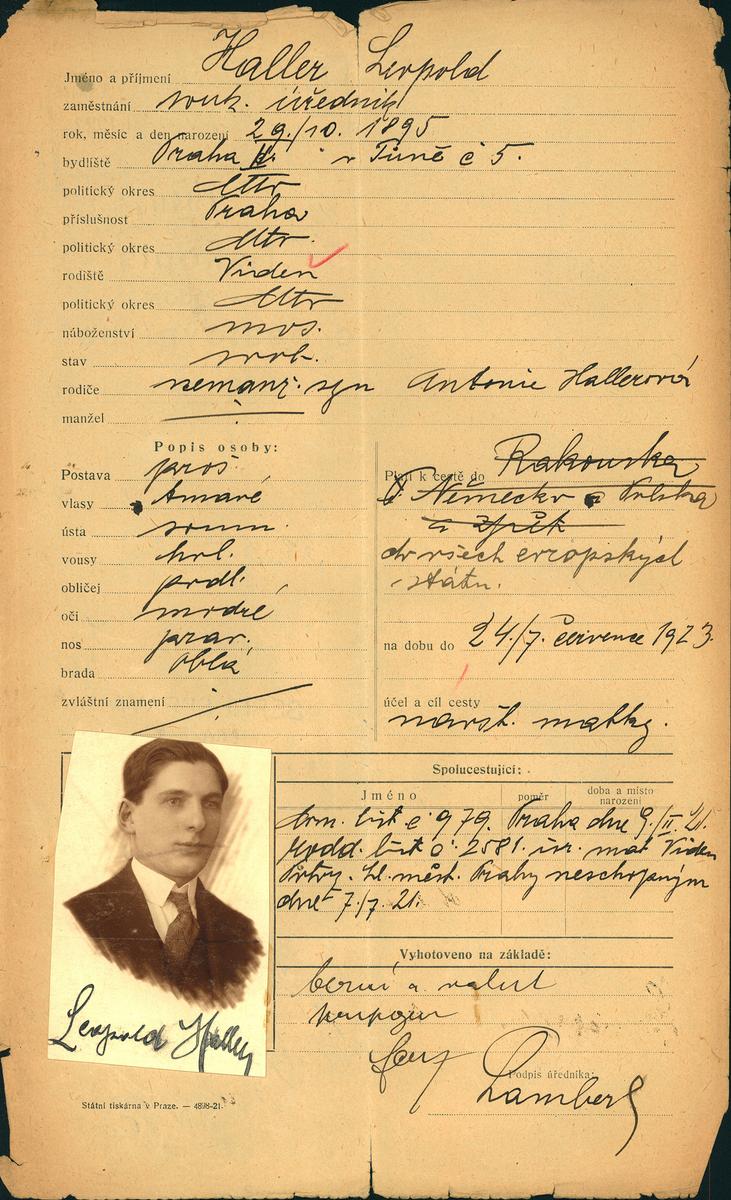 Jméno a příjmení Haller Leopold
zaměstnání souk. úředník
rok, měsíc a den narození 29./10. 1895
bydliště Praha II. v Tůně č 5.
politický okres dtto
příslušnost Praha
politický okres dtto.
rodiště Vídeň
politický okres dtto
náboženství mos.
stav svob.
rodiče nemanž. syn Antonie Hallerová
manžel
Popis osoby:
Postava pros.
vlasy tmavé
ústa soum.
vousy hol.
obličej podl.
oči modré
nos prav.
brada oblá
zvláštní znamení
Platí k cestě do Rakouska
Německo a Polska
a zpět
do všech evropských
států.
na dobu do 24./7. července 1923.
účel a cíl cesty
navšt. matky.
Spolucestující:
Jméno poměr doba a místo narození
dom. list č 979. Praha dne 9./II. 21.
rodd. list č. 2581. isr. mat Vídeň
Potvr. hl. měst. Prahy neschopným
dne 7./7. 21.
Vyhotoveno na základě:
berní a
Podpis úředníka:
Lambert
Leopold Haller
Státní tiskárna v Praze. — 4898-21.